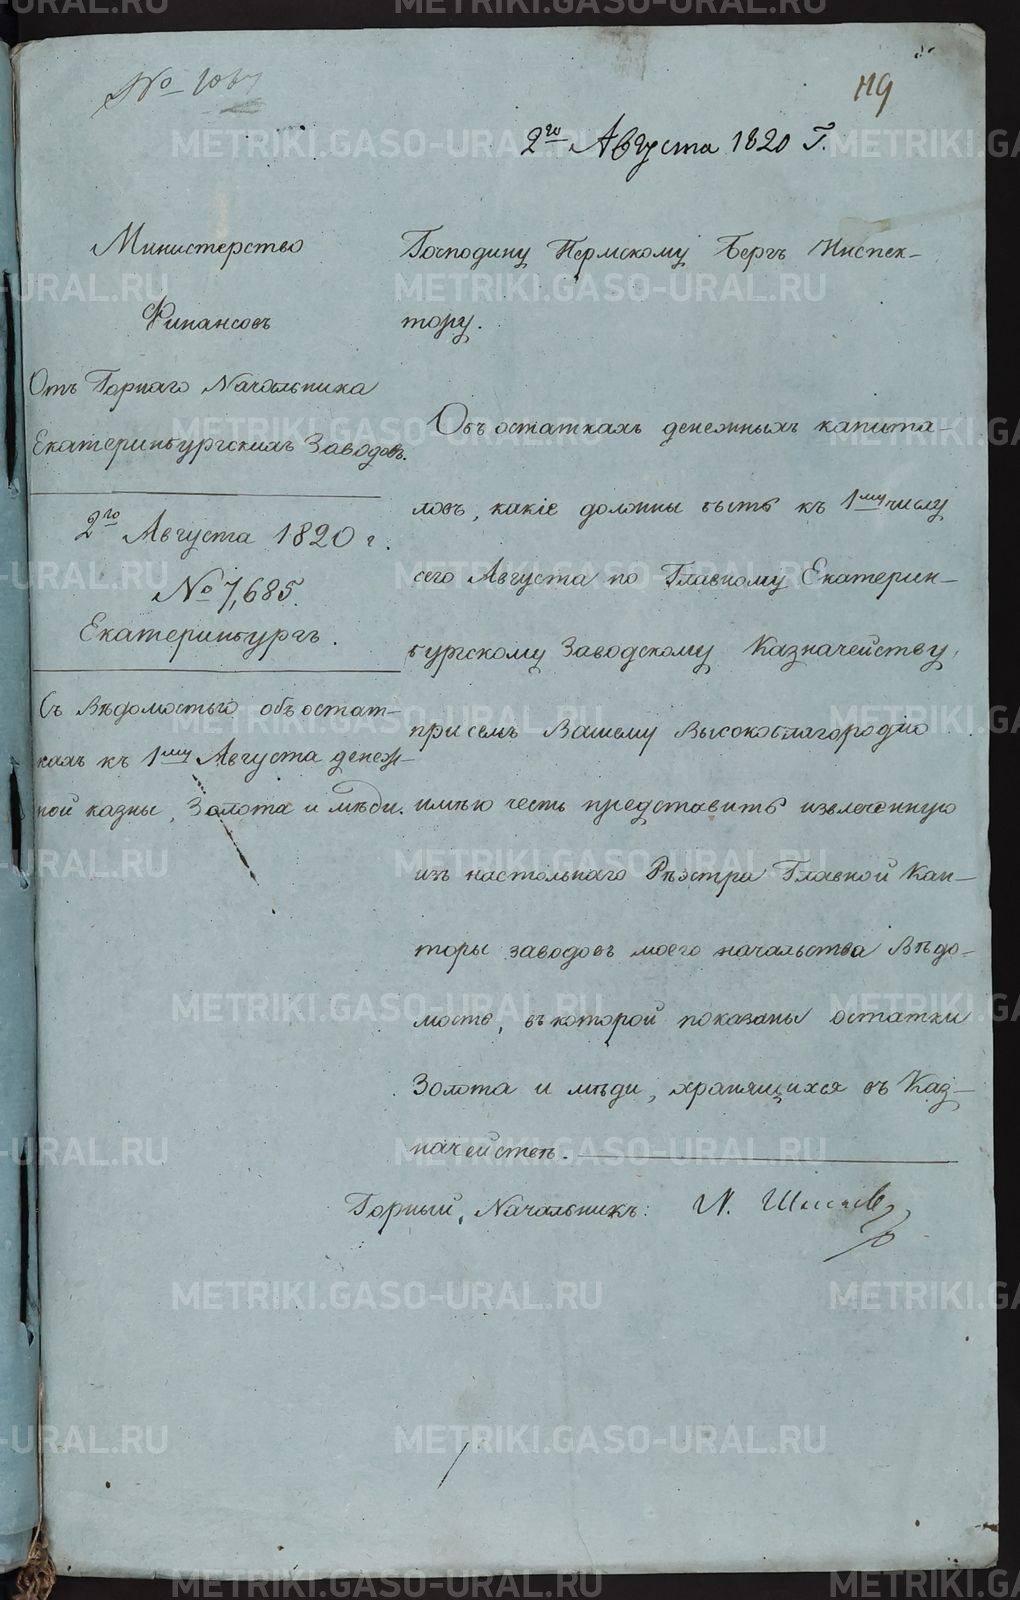 № 1067
119
2го Августа 1820 Г.
Министерство
Финансовъ
Отъ Горнаго Начальника
Екатеринбургскихъ Заводовъ.
2го Августа 1820 г.
№ 7,685.
Екатеринбургъ.
Съ Вѣдомостью объ остат-
кахъ къ 1му Августа денеж-
ной казны, Золота и мѣди.
Господину Пермскому Бергъ Инспек-
тору.
Объ остаткахъ денежныхъ капита-
ловъ, какіе должны быть къ 1му числу
сего Августа по Главному Екатерин-
бургскому Заводскому Казначейству,
при семъ Вашему Высокоблагородію
имѣю честь представить извлеченную
изъ настольнаго Реэстра Главной Кан-
торы заводовъ моего начальства Вѣдо-
мость, въ которой показаны остатки
Золота и мѣди, хранящихся въ Каз-
начействѣ.
Горный Начальникъ:
METRIKI.GASO-URAL.RU